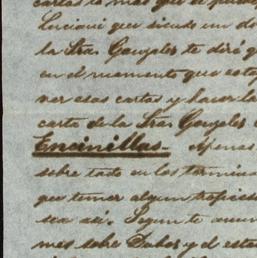 cartas lo mas que el
que siendo un do
la Sra. Gonzales te diré q
en el momento que esta
ver esas cartas y hacer la
carta de la Sra Gonzales
Encinillas- Apenas
sobre todo en los termina
que temer algun
sea asi. Segun te anun
mes sobre y el esta